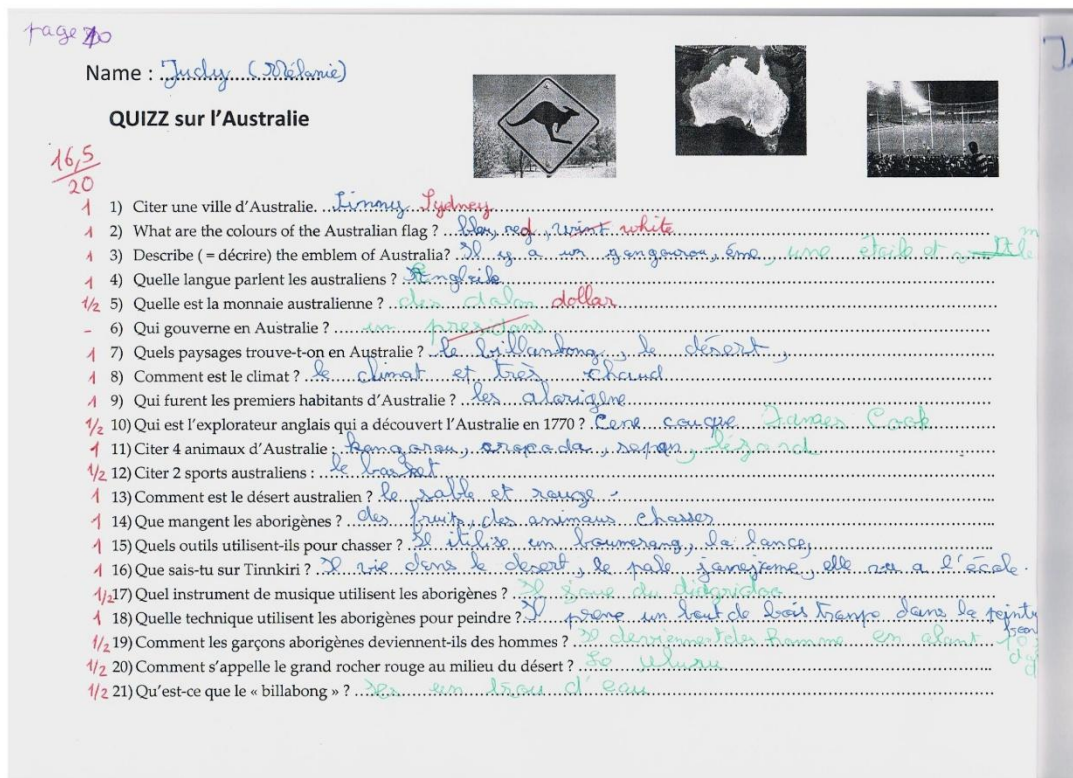 page 10
Name : Judy (Mélanie)
QUIZZ sur l'Australie
16,5
20
1 1) Citer une ville d'Australie. Simmy Sydney
1 2) What are the colours of the Australian flag ? blu, red, wint white
1 3) Describe ( = décrire) the emblem of Australia? Il y a un gangourou, éme, une étoile et
1 4) Quelle langue parlent les australiens ?
1/2 5) Quelle est la monnaie australienne ? des dalon dollar
- 6) Qui gouverne en Australie ? un presidans
1 7) Quels paysages trouve-t-on en Australie ? le billanbong, le désert,
1 8) Comment est le climat ? le climat et très chaud
1 9) Qui furent les premiers habitants d'Australie ? les alorigène
1/2 10) Qui est l'explorateur anglais qui a découvert l'Australie en 1770 ? Cene couque James Cook
1 11) Citer 4 animaux d'Australie : kangorou, cropada, sepan, lézard
1/2 12) Citer 2 sports australiens : le basket
1 13) Comment est le désert australien ? le sable et rouge.
1 14) Que mangent les aborigènes ? des fruits, des animaus chasses
1 15) Quels outils utilisent-ils pour chasser ? Il itilise un boumerang, la lance,
1 16) Que sais-tu sur Tinnkiri ? Il vie dans le desert, le pale janejeme, elle va a l'école.
1/2 17) Quel instrument de musique utilisent les aborigènes ? Il joue du didgridoo
1 18) Quelle technique utilisent les aborigènes pour peindre ? Il prene un bout de bois tranpo dans la peinty
1/2 19) Comment les garçons aborigènes deviennent-ils des hommes ? Il deviennent des homme en alant
1/2 20) Comment s'appelle le grand rocher rouge au milieu du désert ? Le uluru
1/2 21) Qu'est-ce que le « billabong » ? Ses un trou d'eau